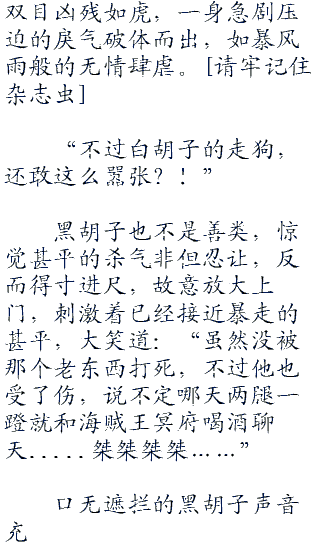 双目凶残如虎，一身急剧压
迫的戾气破体而出，如暴风
雨般的无情肆虐。[请牢记住
杂志虫]
“不过白胡子的走狗，
还敢这么嚣张？！”
黑胡子也不是善类，惊
觉甚平的杀气非但忍让，反
而得寸进尺，故意放大上
门，刺激着已经接近暴走的
甚平，大笑道：“虽然没被
那个老东西打死，不过他也
受了伤，说不定哪天两腿一
蹬就和海贼王冥府喝酒聊
天.....桀桀桀桀……”
口无遮拦的黑胡子声音
充